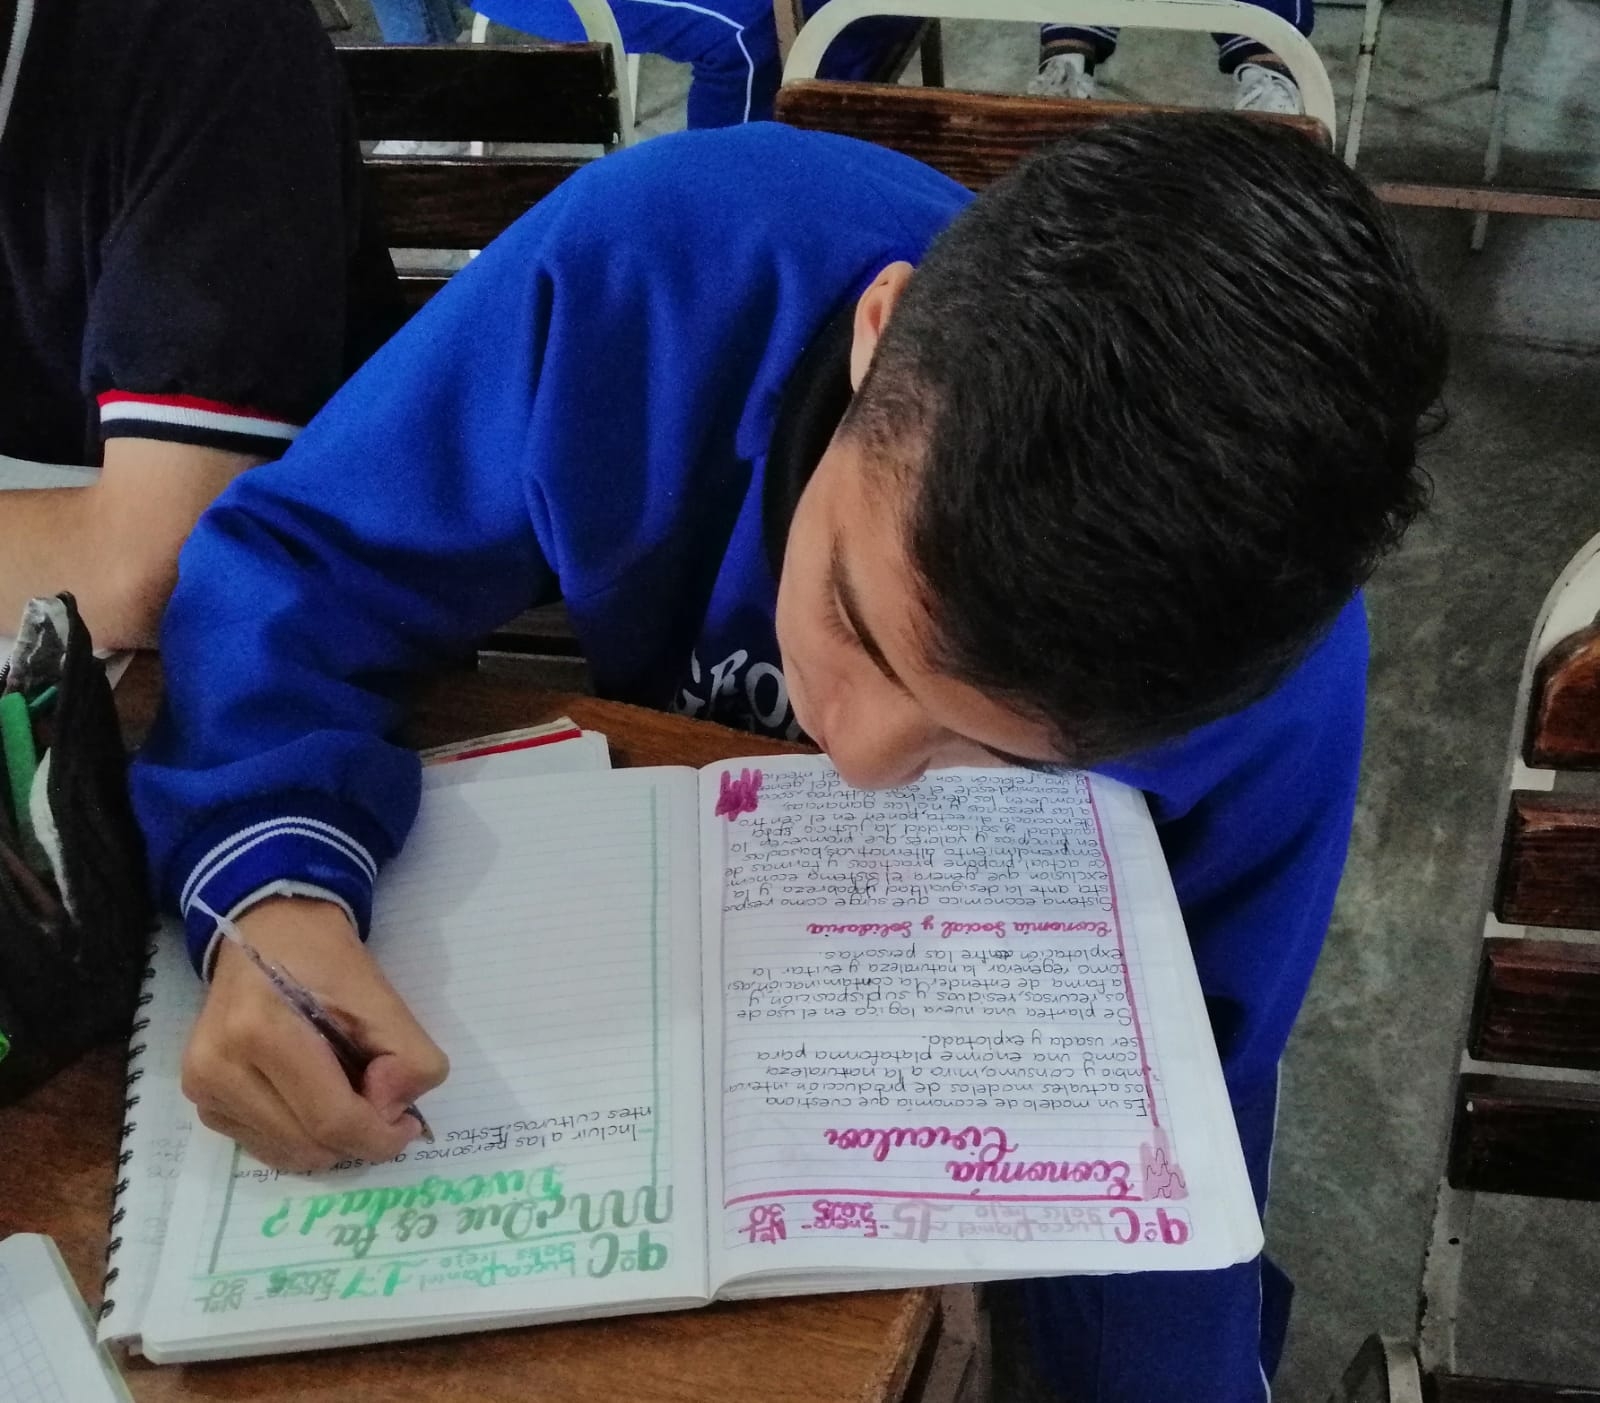 9°C Lucca Daniel 15 -Enero- N.L
Trejo 2025 30
Economía
Circular
Es un modelo de economía que cuestiona
los actuales modelos de producción, interca
mbio y consumo, mira a la naturaleza
como una enorme plataforma para
ser usada y explotada.
Se plantea una nueva logica en el uso de
los recursos, residuos y su disposición y
a forma de entender la contaminación, asi
como regenerar la naturaleza y evitar la
explotación entre las personas.
Economía Social y Solidaria
Sistema economico que surge como respue
sta ante la desigualdad y pobreza y la
exclusión que genera el sistema econom
co actual, propone practicas y formas de
emprendimiento alternativas, basados
en principios y valores que promueven la
igualdad y solidaridad, la justicia, esta
democracia directa, ponen en el centro
a las personas y no las ganancias,
promueven las diferentes culturas
y economia desde el del gene
una relación con del medio
9°C Lucca Daniel 17 Enero N.L
Trejo 2025 30
¿Que es la
Diversidad?
-Incluir a las personas que son de difere
ntes culturas. Estas
GRO